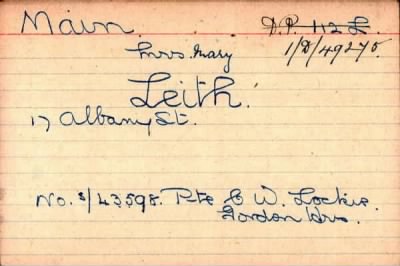 Main.
D.P. 112 L.
1/D/49275.
Mrs. Mary
Leith.
17 Albany St.
No. S/43598. Pte C W. Lockie.
Gordon Hrs.